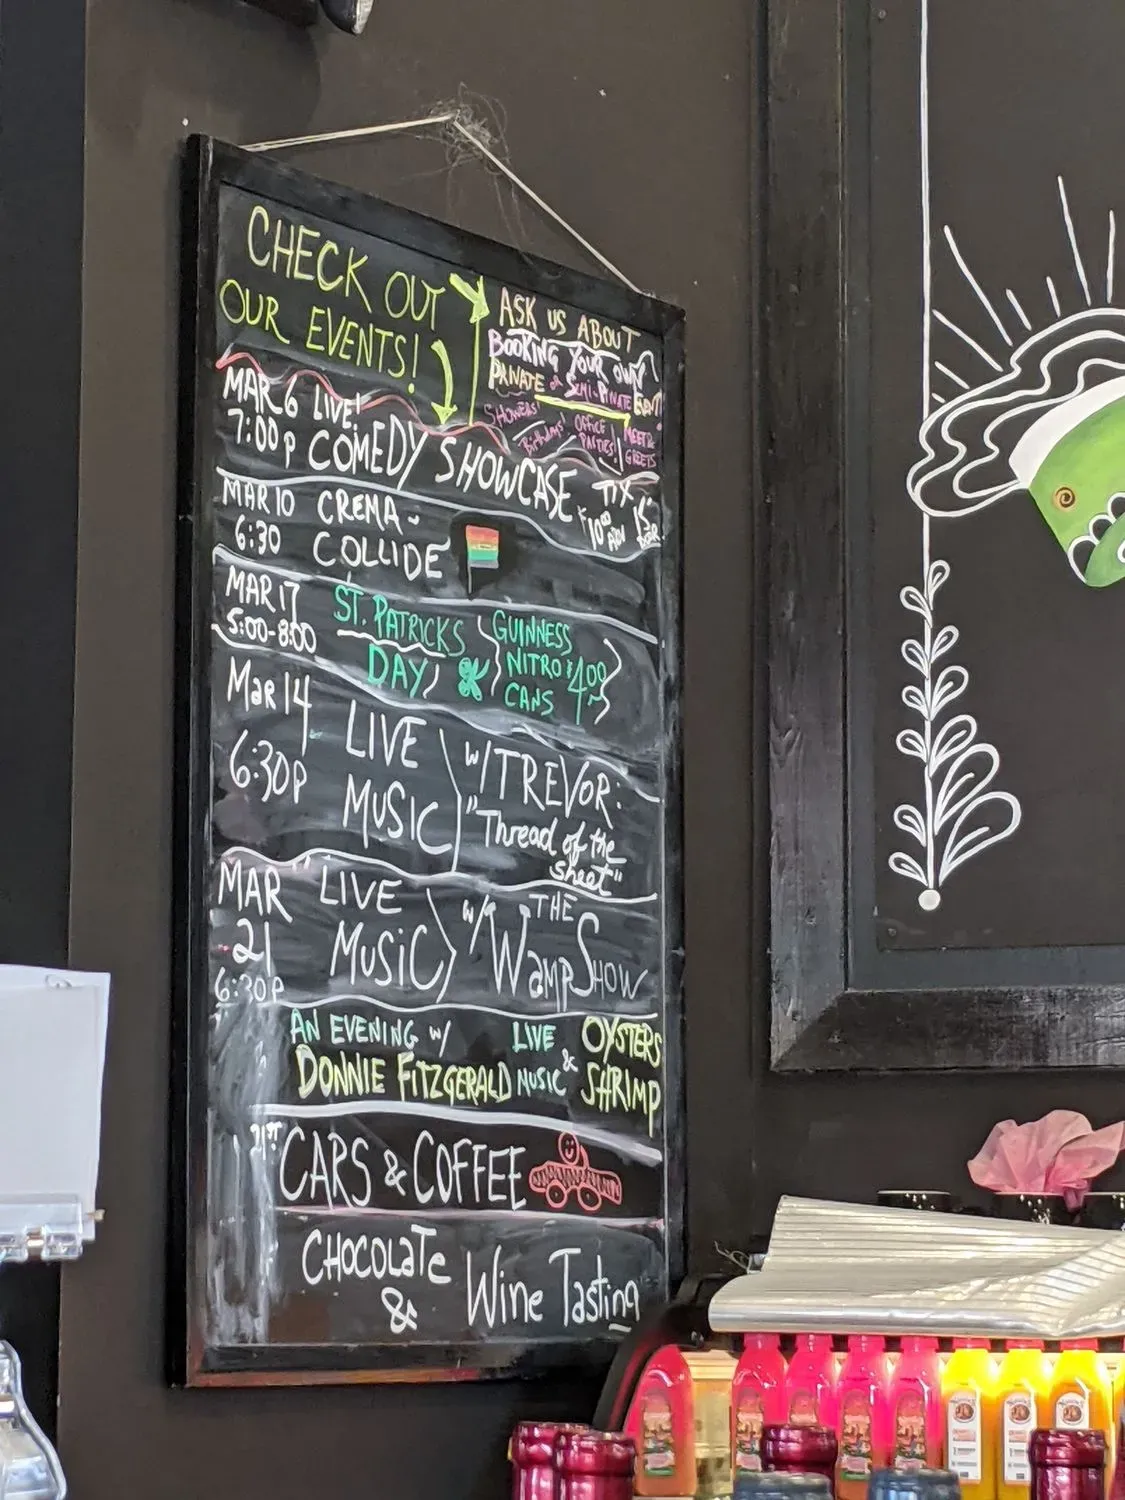 CHECK OUT
OUR EVENTS!
ASK US ABOUT
BOOKING YOUR OWN
PRIVATE or SEMI-PRIVATE EVENT!
SHOWERS!
Birthdays!
OFFICE
PARTIES!
MEET &
GREETS
MAR 6 LIVE!
7:00p COMEDY SHOWCASE
TIX
$10.00 15
ADV DOOR
MAR 10 CREMA-
6:30 COLLIDE
MAR 17 ST. PATRICKS
5:00-8:00 DAY
GUINNESS
NITRO $4.00
CANS
Mar 14 LIVE
6:30P MUSIC
w/ TREVOR:
"Thread of the
sheet"
MAR LIVE
21 MUSIC
6:30P
w/ THE
WAMP SHOW
AN EVENING w/ LIVE OYSTERS
DONNIE FITZGERALD MUSIC & SHRIMP
21ST CARS & COFFEE
CHOCOLATE
& Wine Tasting